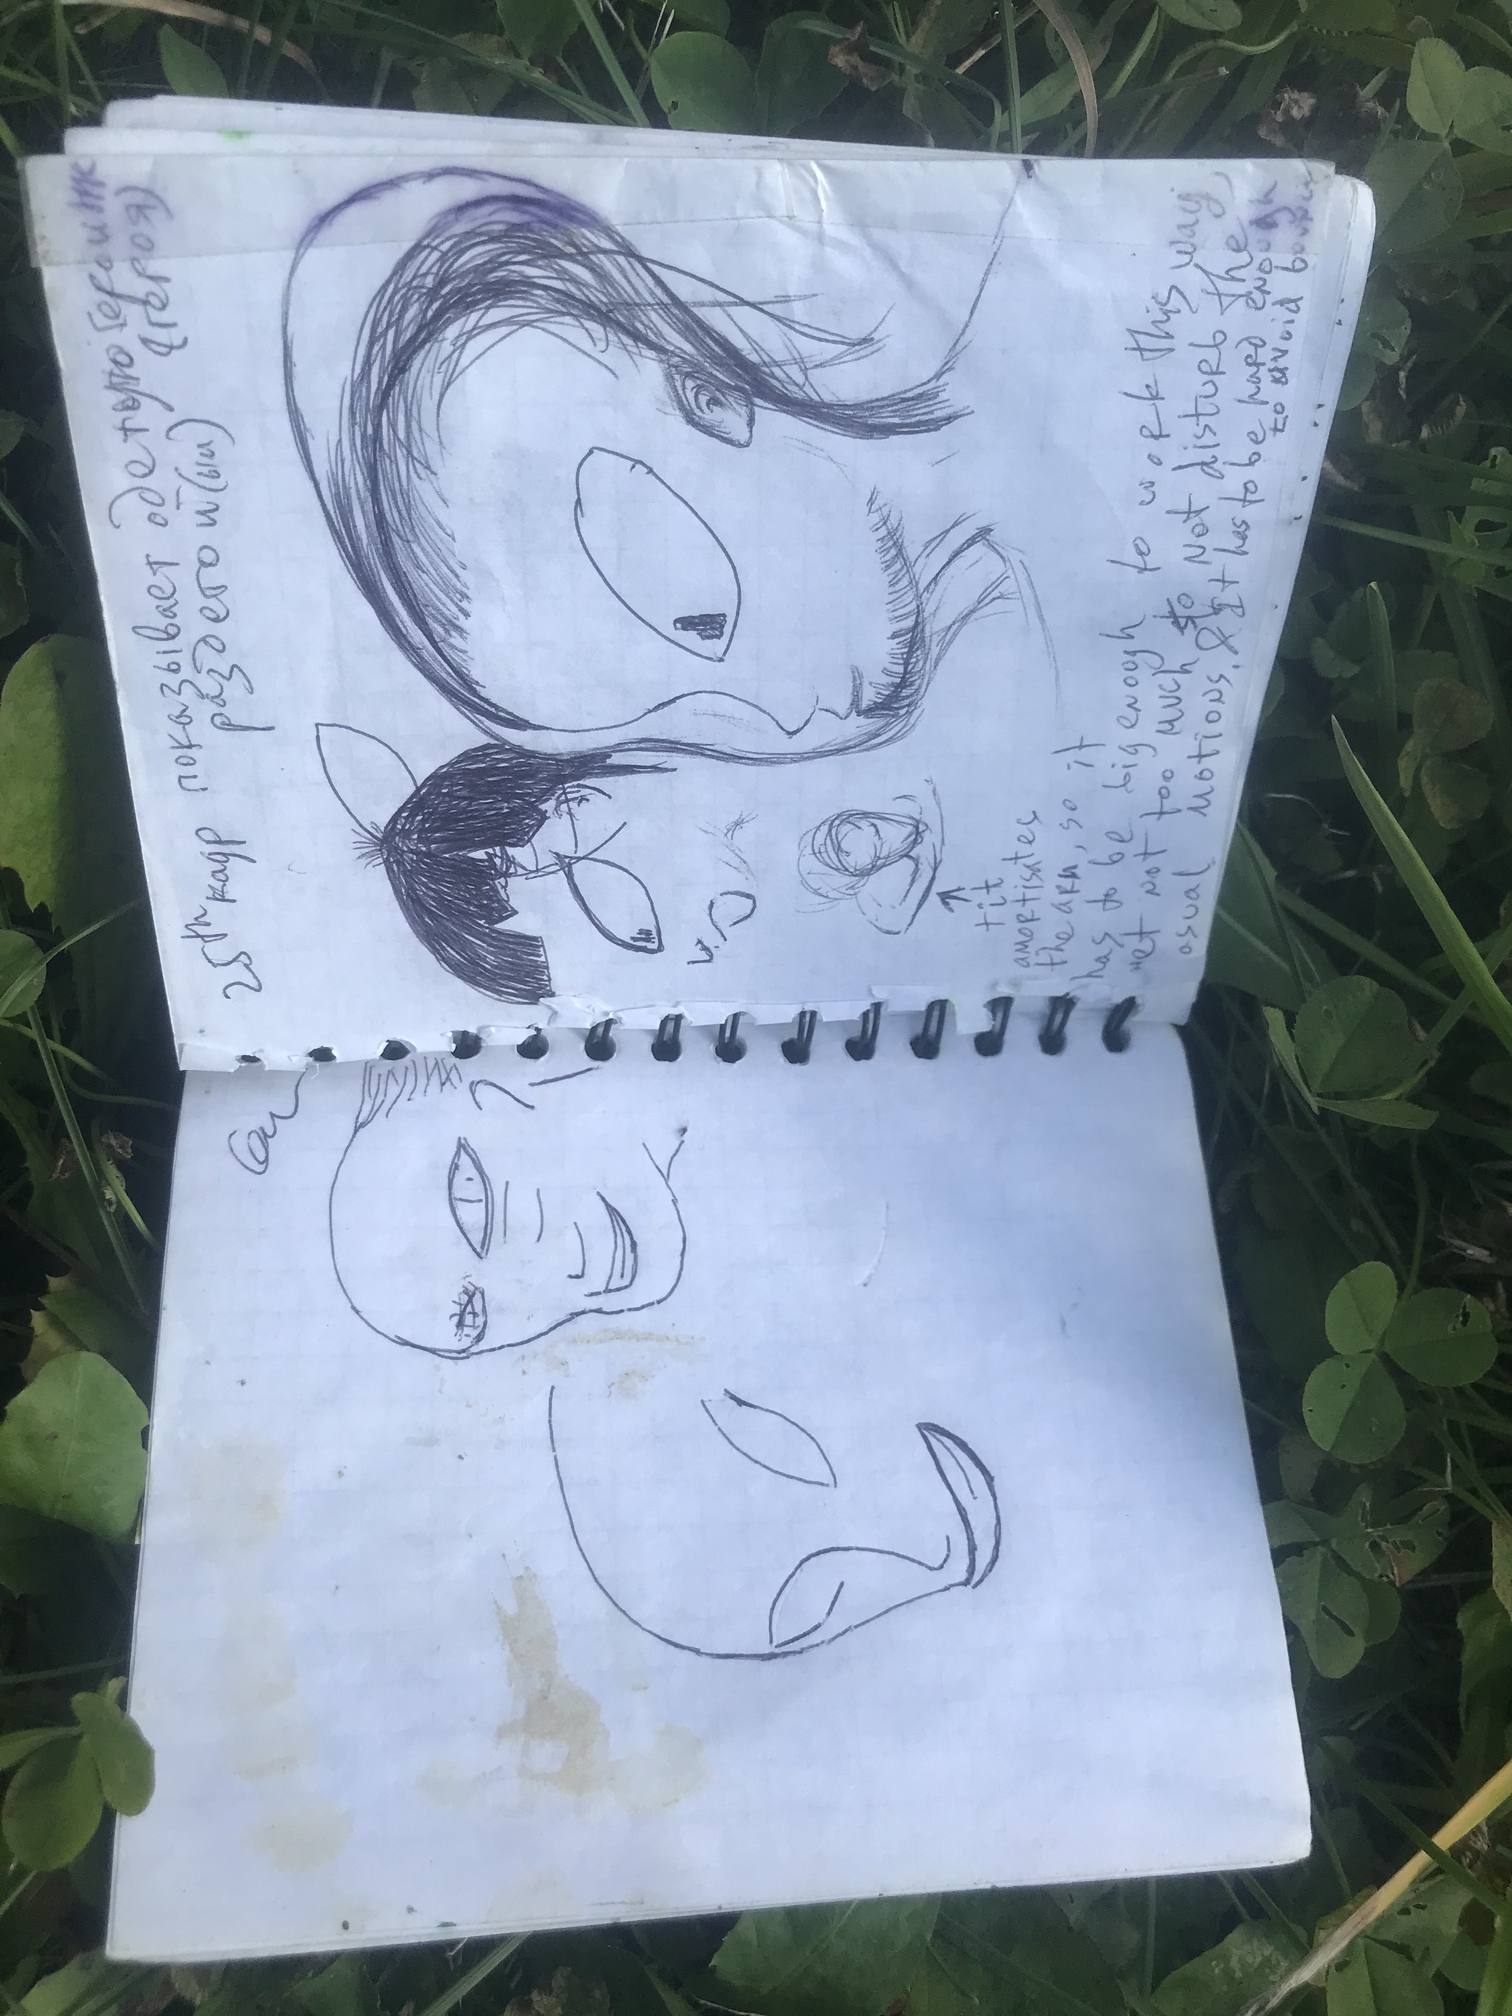 25th кадр показывает одетую героиню
(героя)
раздетой(ым)
tit
amortisates
the arm, so it
has to be big enough to work this way
yet not too much to not disturb the
usual motions. & It has to be hard enough
to avoid